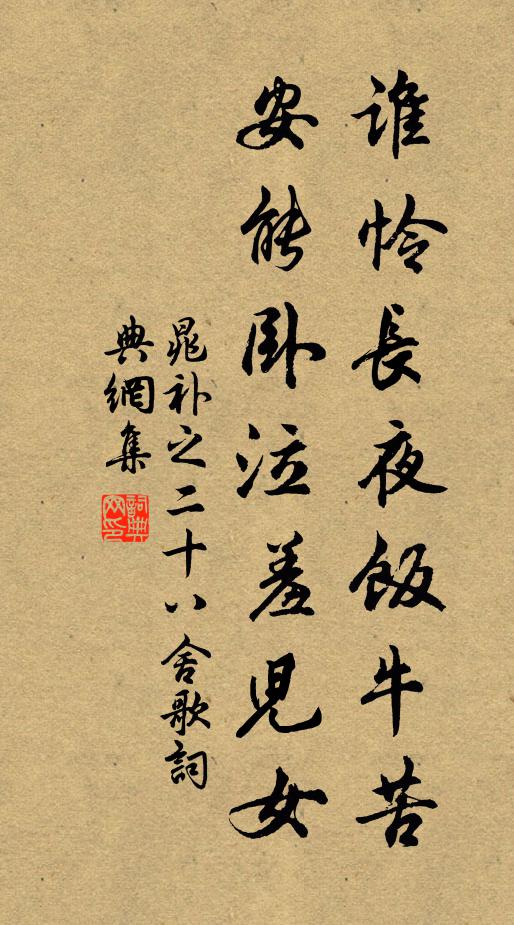 誰怜長夜飯牛苦
安能卧泣羞兒女
晁补之二十八舍歌詞
典網集
詞典网印